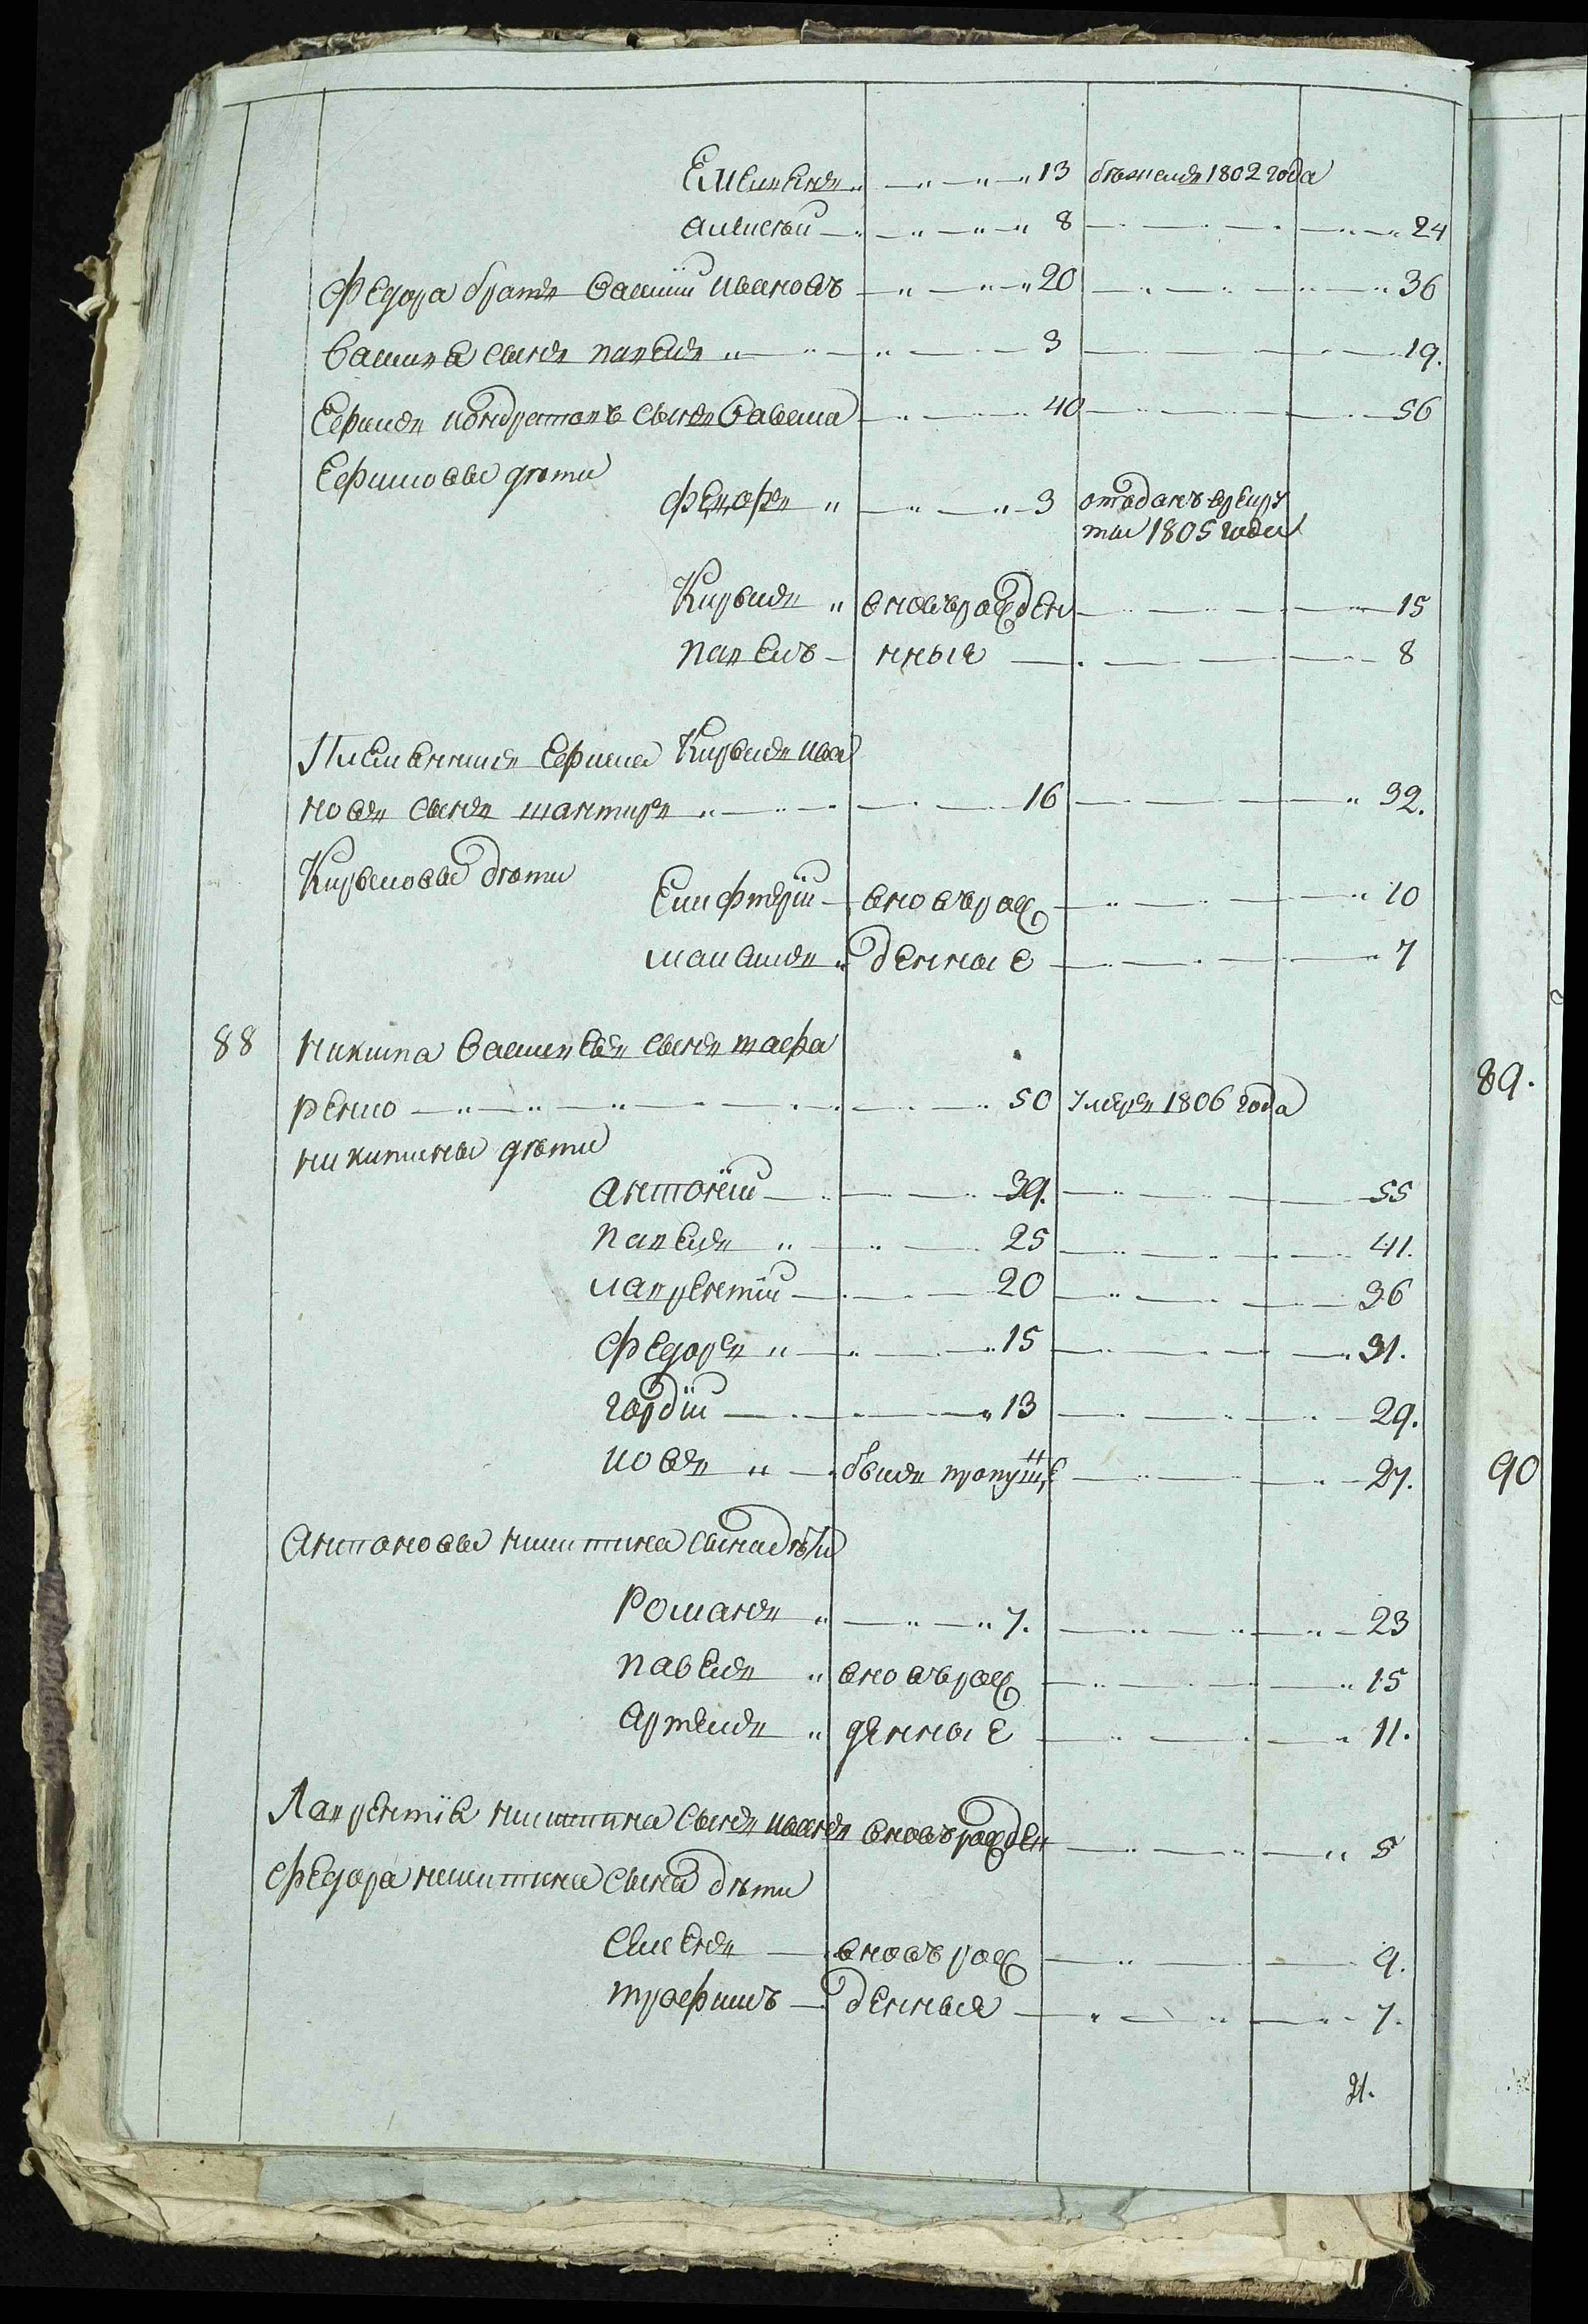 Емельянъ 13 бежалъ 1802 года
алексѣй 8 24
Федора братъ Василій ивановъ 20 36
Василья сынъ павелъ 3 19.
Ефимъ кондратовъ сынъ 40 56
Ефимовы дѣти
Федоръ 3 отъданъ врекру
ты 1805 года
Кирилъ вновърожден 15
павелъ нныя 8
Племянникъ Ефима Кирилъ ива
новъ сынъ шантыръ 16 32.
Кириловы дѣти
Елифтерій вновърож 10
малашъ денные 7
88 никита Васильевъ сынъ тафа
ренко 50 Умеръ 1806 года
никитины дѣти
антоній 39. 55
павелъ 25 41.
лаврентій 20 36
Федоръ 15 31.
гордій 13 29.
иовъ былъ пропуще 27.
антоновы никитина сына дѣти
Романъ 7. 23
павелъ вновърож 15
артемъ денные 11.
Лаврентія никитина сынъ иванъ вновърожден 5
Федора никитина сына дѣти
Семенъ вновърож 9.
трофимъ денныя 7.
21.
89.
90